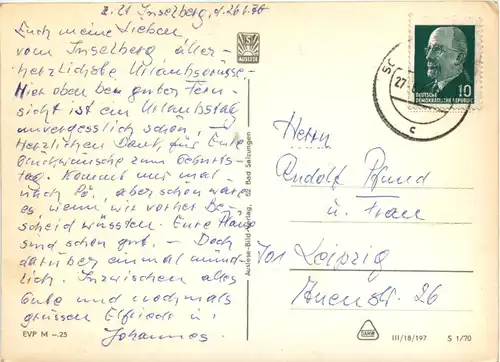 z. Zt Inselberg, d. 26.7.70
Euch meine Lieben
vom Inselberg aller-
herzlichste Urlaubsgrüsse -
Hier oben bei guter Fern-
sicht ist ein Urlaubstag
unvergesslich schön, -
Herzlichen Dank für Eure
Glückwünsche zum Geburts-
tag. Kommt nur mal
nach, aber schön wäre
es, wenn wir vorher Be-
scheid wüssten. Eure Pläne
sind schon gut. - Doch
darüber einmal münd-
lich. Inzwischen alles
Gute und nochmals
grüssen Elfriede u.
Johannes.
EVP M -.25
AUSLESE
Auslese-Bild-Verlag, 62 Bad Salzungen
10
DEUTSCHE
DEMOKRATISCHE REPUBLIK
27
c
Herrn
Rudolf Pfund
u. Frau
Leipzig
26
III/18/197
S 1/70